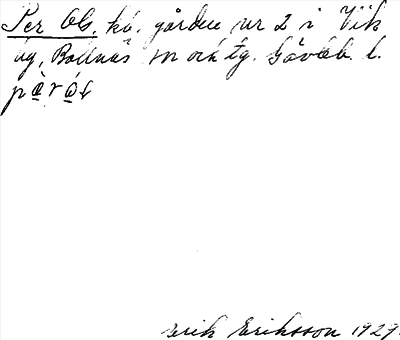 Per Ols, kb. gården nr 2 i Vik
by, Bollnäs sn och tg. Gävleb. l.
pèrós
Erik Eriksson 1929.